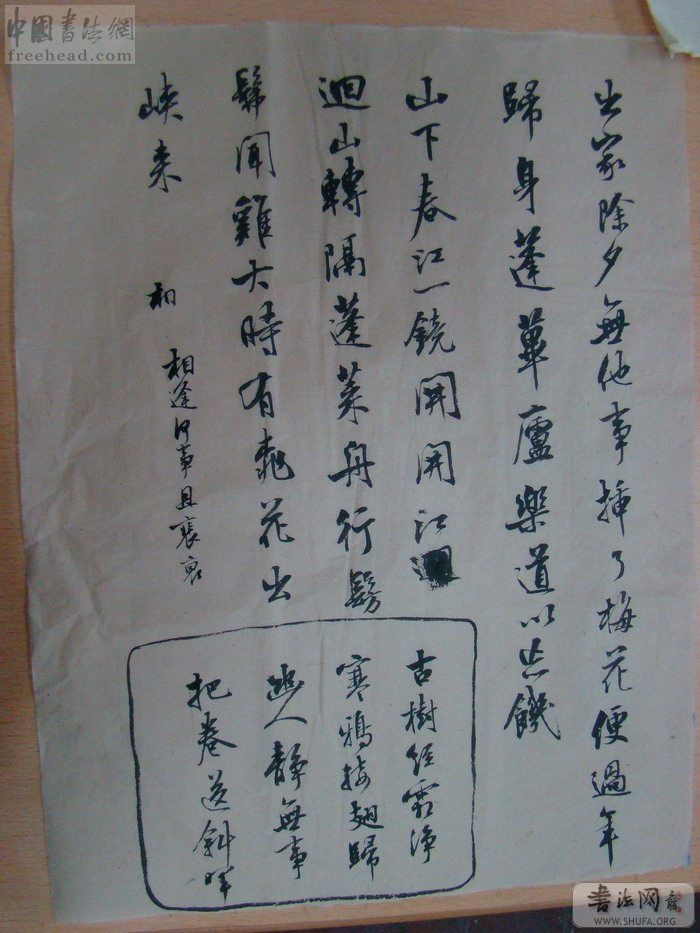 中國書法網
freehead.com
出家除夕無他事插了梅花便過年
歸身蓬蓽廬樂道以忘饑
山下春江一鏡開開江
迴山轉隔蓬萊舟行髣
髴聞雞犬時有桃花出
峽来
相 相逢何事且
古樹經霜淨
寒鴉接翅歸
幽人靜無事
把卷送斜暉
书法网
WWW.SHUFA.ORG